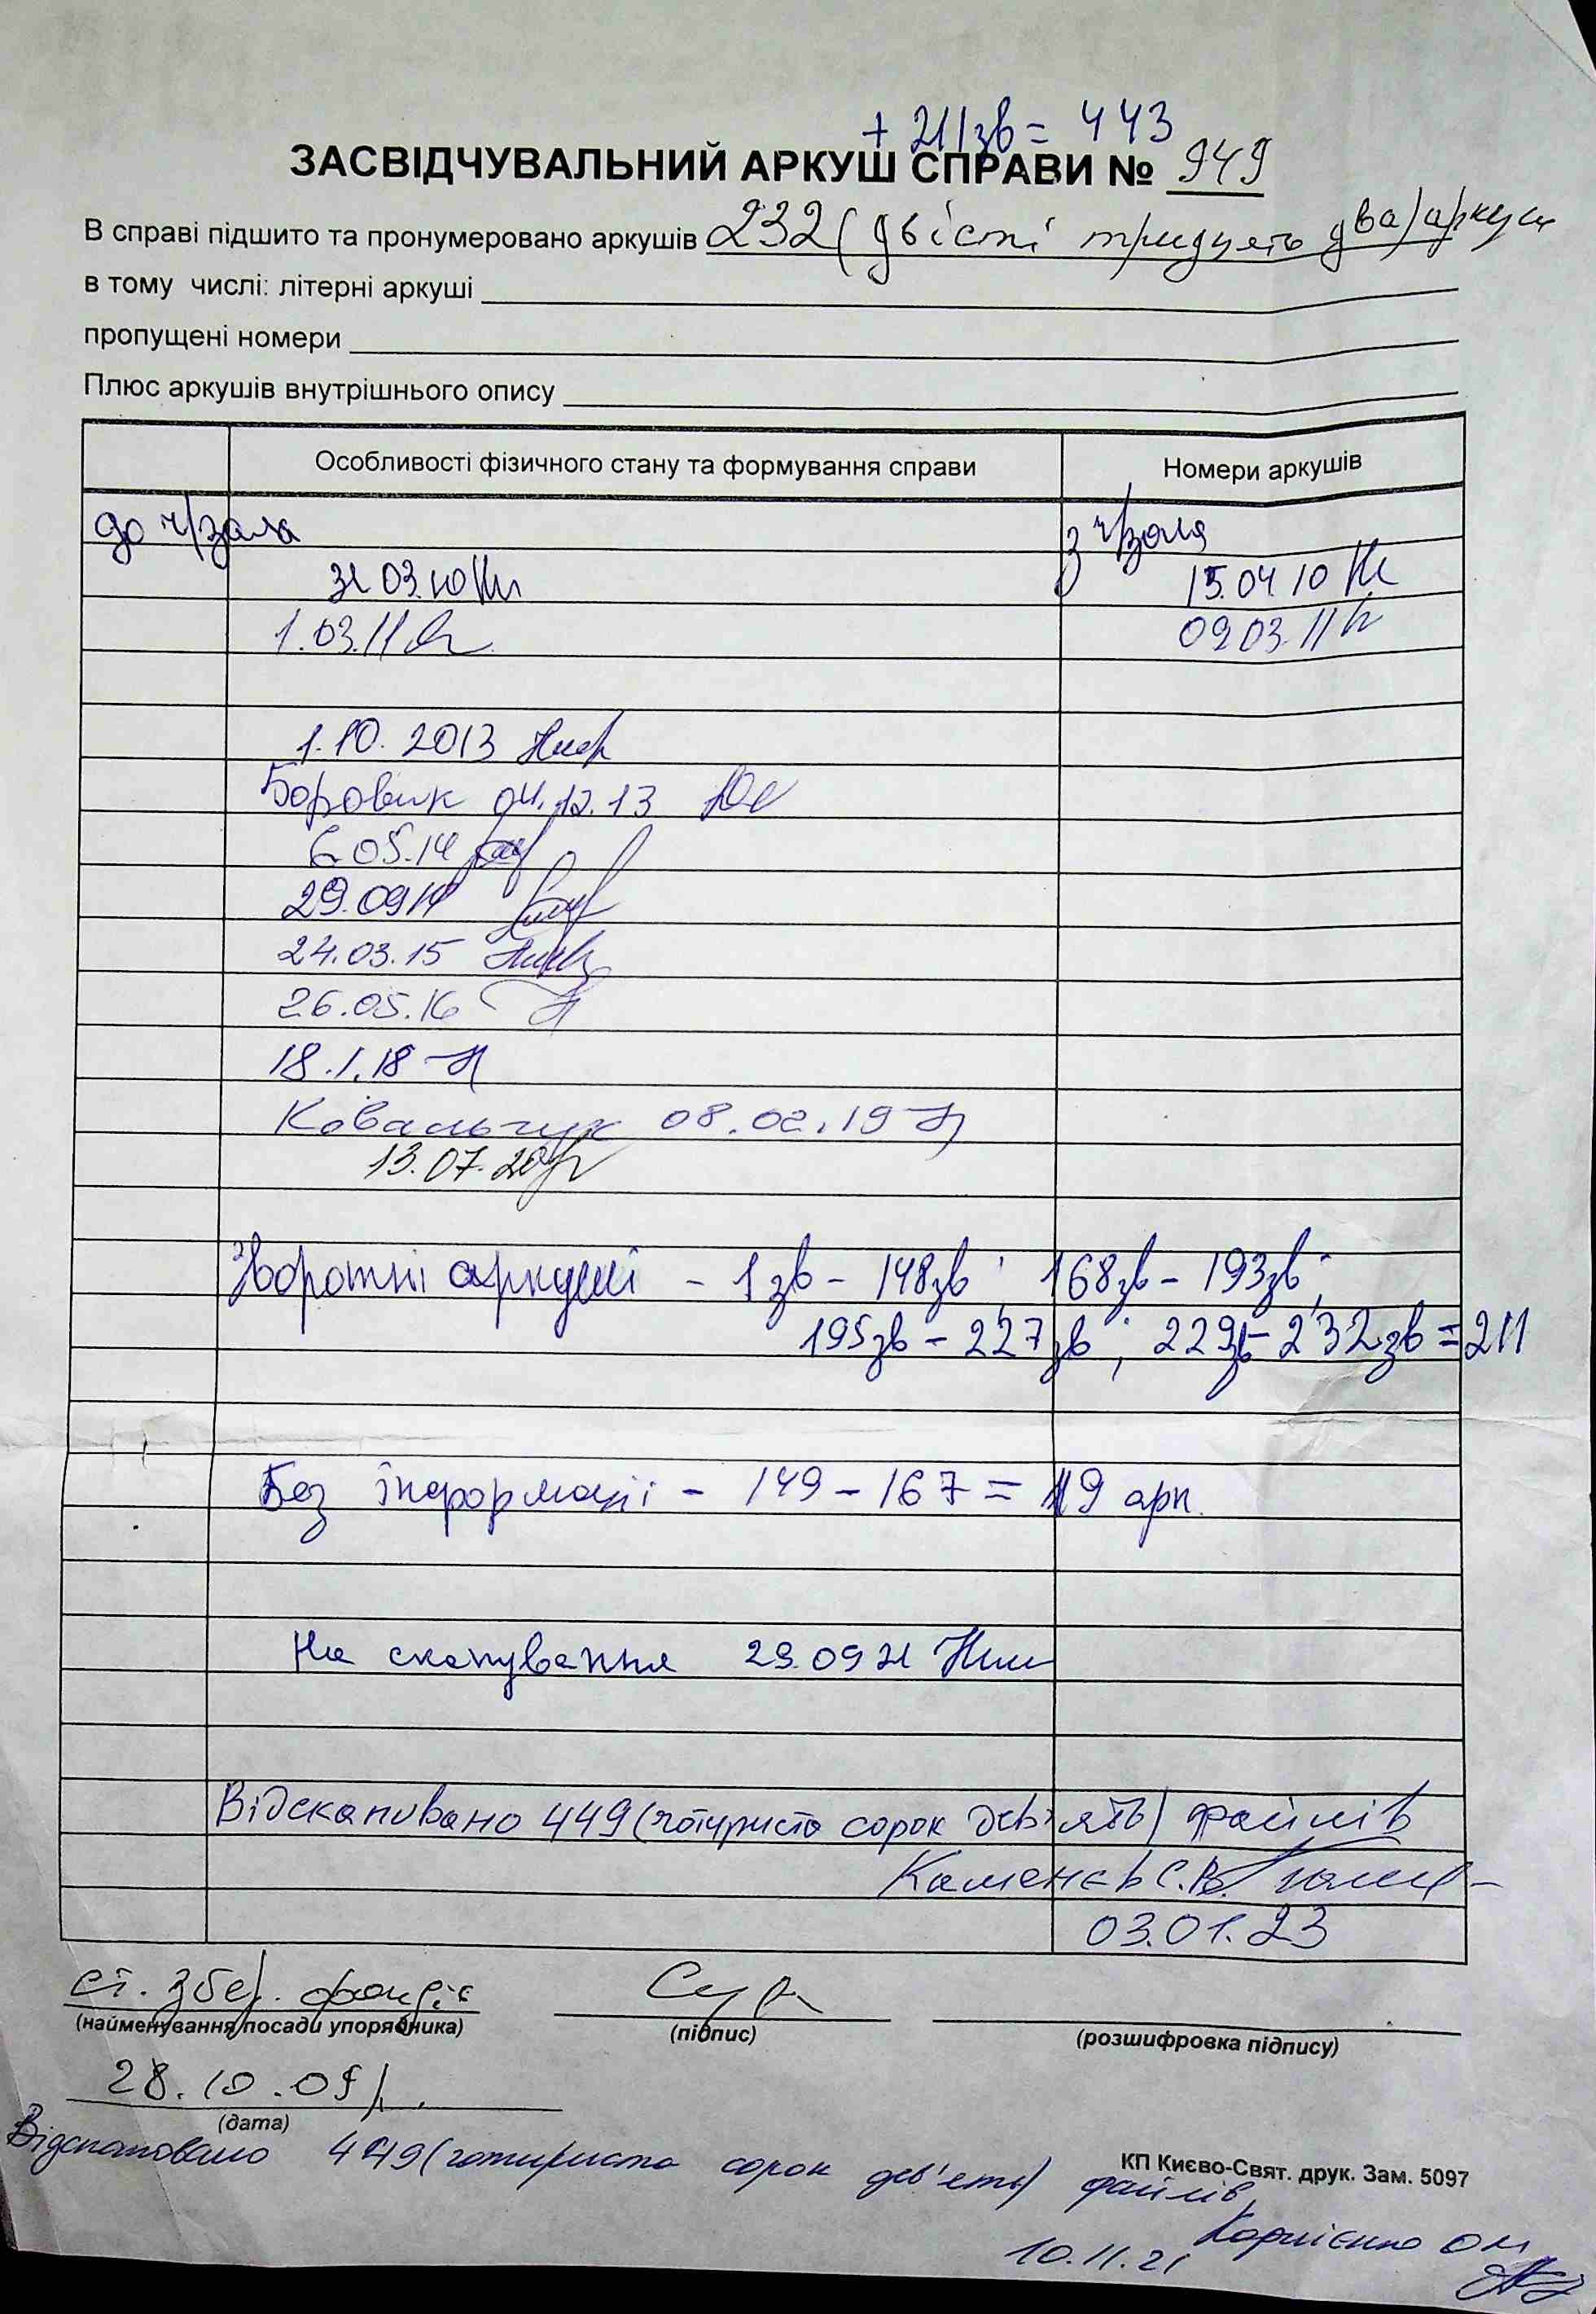 + 211зв = 443
ЗАСВІДЧУВАЛЬНИЙ АРКУШ СПРАВИ № 949
В справі підшито та пронумеровано аркушів 232 (двісті тридцять два) аркуші
в тому числі: літерні аркуші
пропущені номери
Плюс аркушів внутрішнього опису
Особливості фізичного стану та формування справи Номери аркушів
до ч/зала з ч/зала
31.03.10 15.04.10
1.03.11 09.03.11
1.10.2013
Боровик 04.12.13
6.05.14
29.09.14
24.03.15
26.05.16
18.1.18
Ковальчук 08.02.19
13.07.20
Зворотні аркуші - 1зв - 148зв; 168зв - 193зв;
195зв - 227зв; 229зв - 232зв = 211
Без інформації - 149 - 167 = 19 арк.
На сканування 29.09.21
Відскановано 449 (чотириста сорок дев'ять) файлів
Каменєв С.В.
03.01.23
ст. збер. фондів
(найменування посади упорядника) (підпис) (розшифровка підпису)
28.10.09 р.
(дата)
Відскановано 449 (чотириста сорок дев'ять) файлів
КП Києво-Свят. друк. Зам. 5097
Корнієнко О.М.
10.11.21